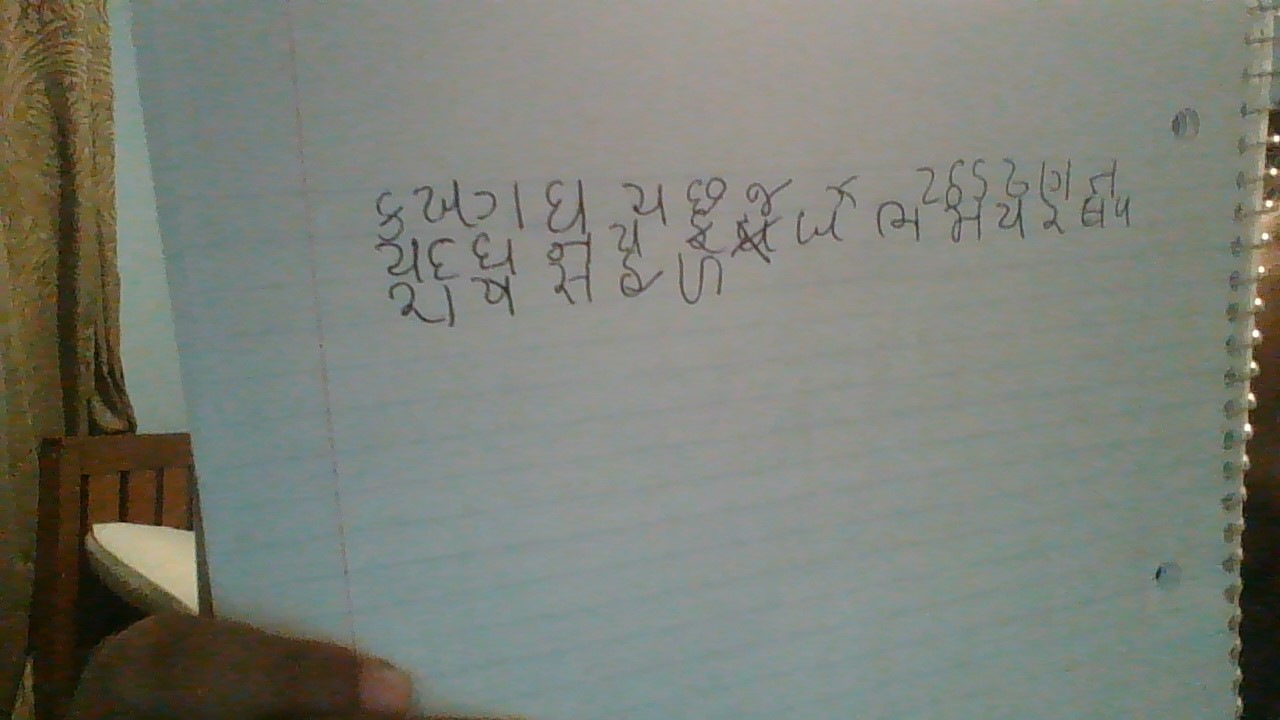 ક ખ ગ ઘ ચ છ જ ઝ ટ ઠ ડ ઢ ણ ત
થ દ ધ ન પ ફ બ ભ મ ય ર લ વ
શ ષ સ હ ળ